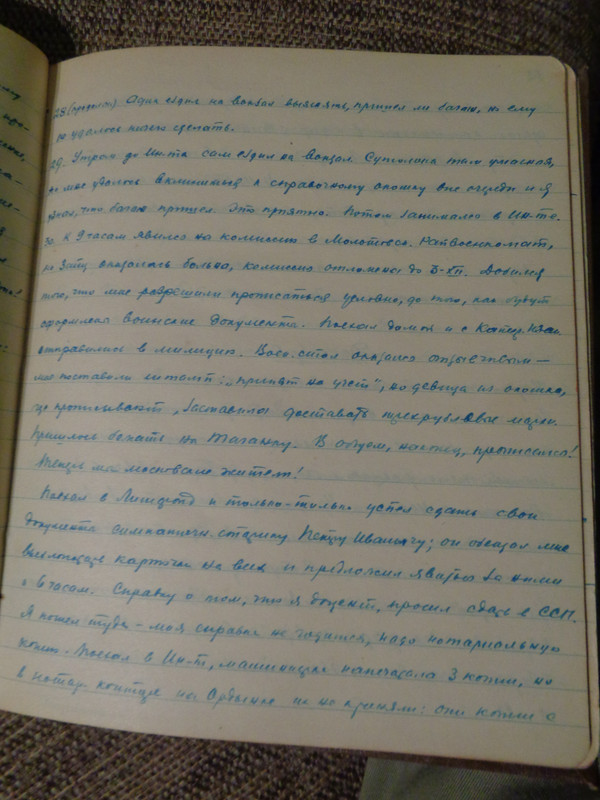 28 (продолж). Один ездил на вокзал выяснять, пришел ли багаж, но ему
не удалось ничего сделать.
29. Утром до Ин-та сам ездил на вокзал. Сутолока там ужасная,
но мне удалось вклиниться к справочному окошку вне очереди и я
узнал, что багаж пришел. Это приятно. Потом занимался в Ин-те.
30. К 9 часам явился на комиссию в Молотовск. Райвоенкомат,
но оказалась больна, комиссия отложена до 5-XII. Добился
того, что мне разрешили прописаться условно, до того, как будут
оформлены воинские документы. Поехал домой и с Катер. Иван.
отправились в милицию. Воен. стол оказался отзывчивым —
мне поставили штамп: „принят на учет", но девица из окошка,
где прописывают, заставила доставать трехрублевые марки.
Пришлось бежать на Таганку. В общем, наконец, прописался!
Теперь мы московские жители!
Поехал в Литфонд и только-только успел сдать свои
документы симпатичн. старику Петру Иванычу; он обещал мне
карточки на всех и предложил явиться за ними
к 6 часам. Справку о том, что я доцент, просил сдать в ССП.
Я пошел туда - моя справка не годится, надо нотариальную
копию. Поехал в Ин-т, машинистка напечатала 3 копии, но
в нотар. конторе на Ордынке их не приняли: они копии с